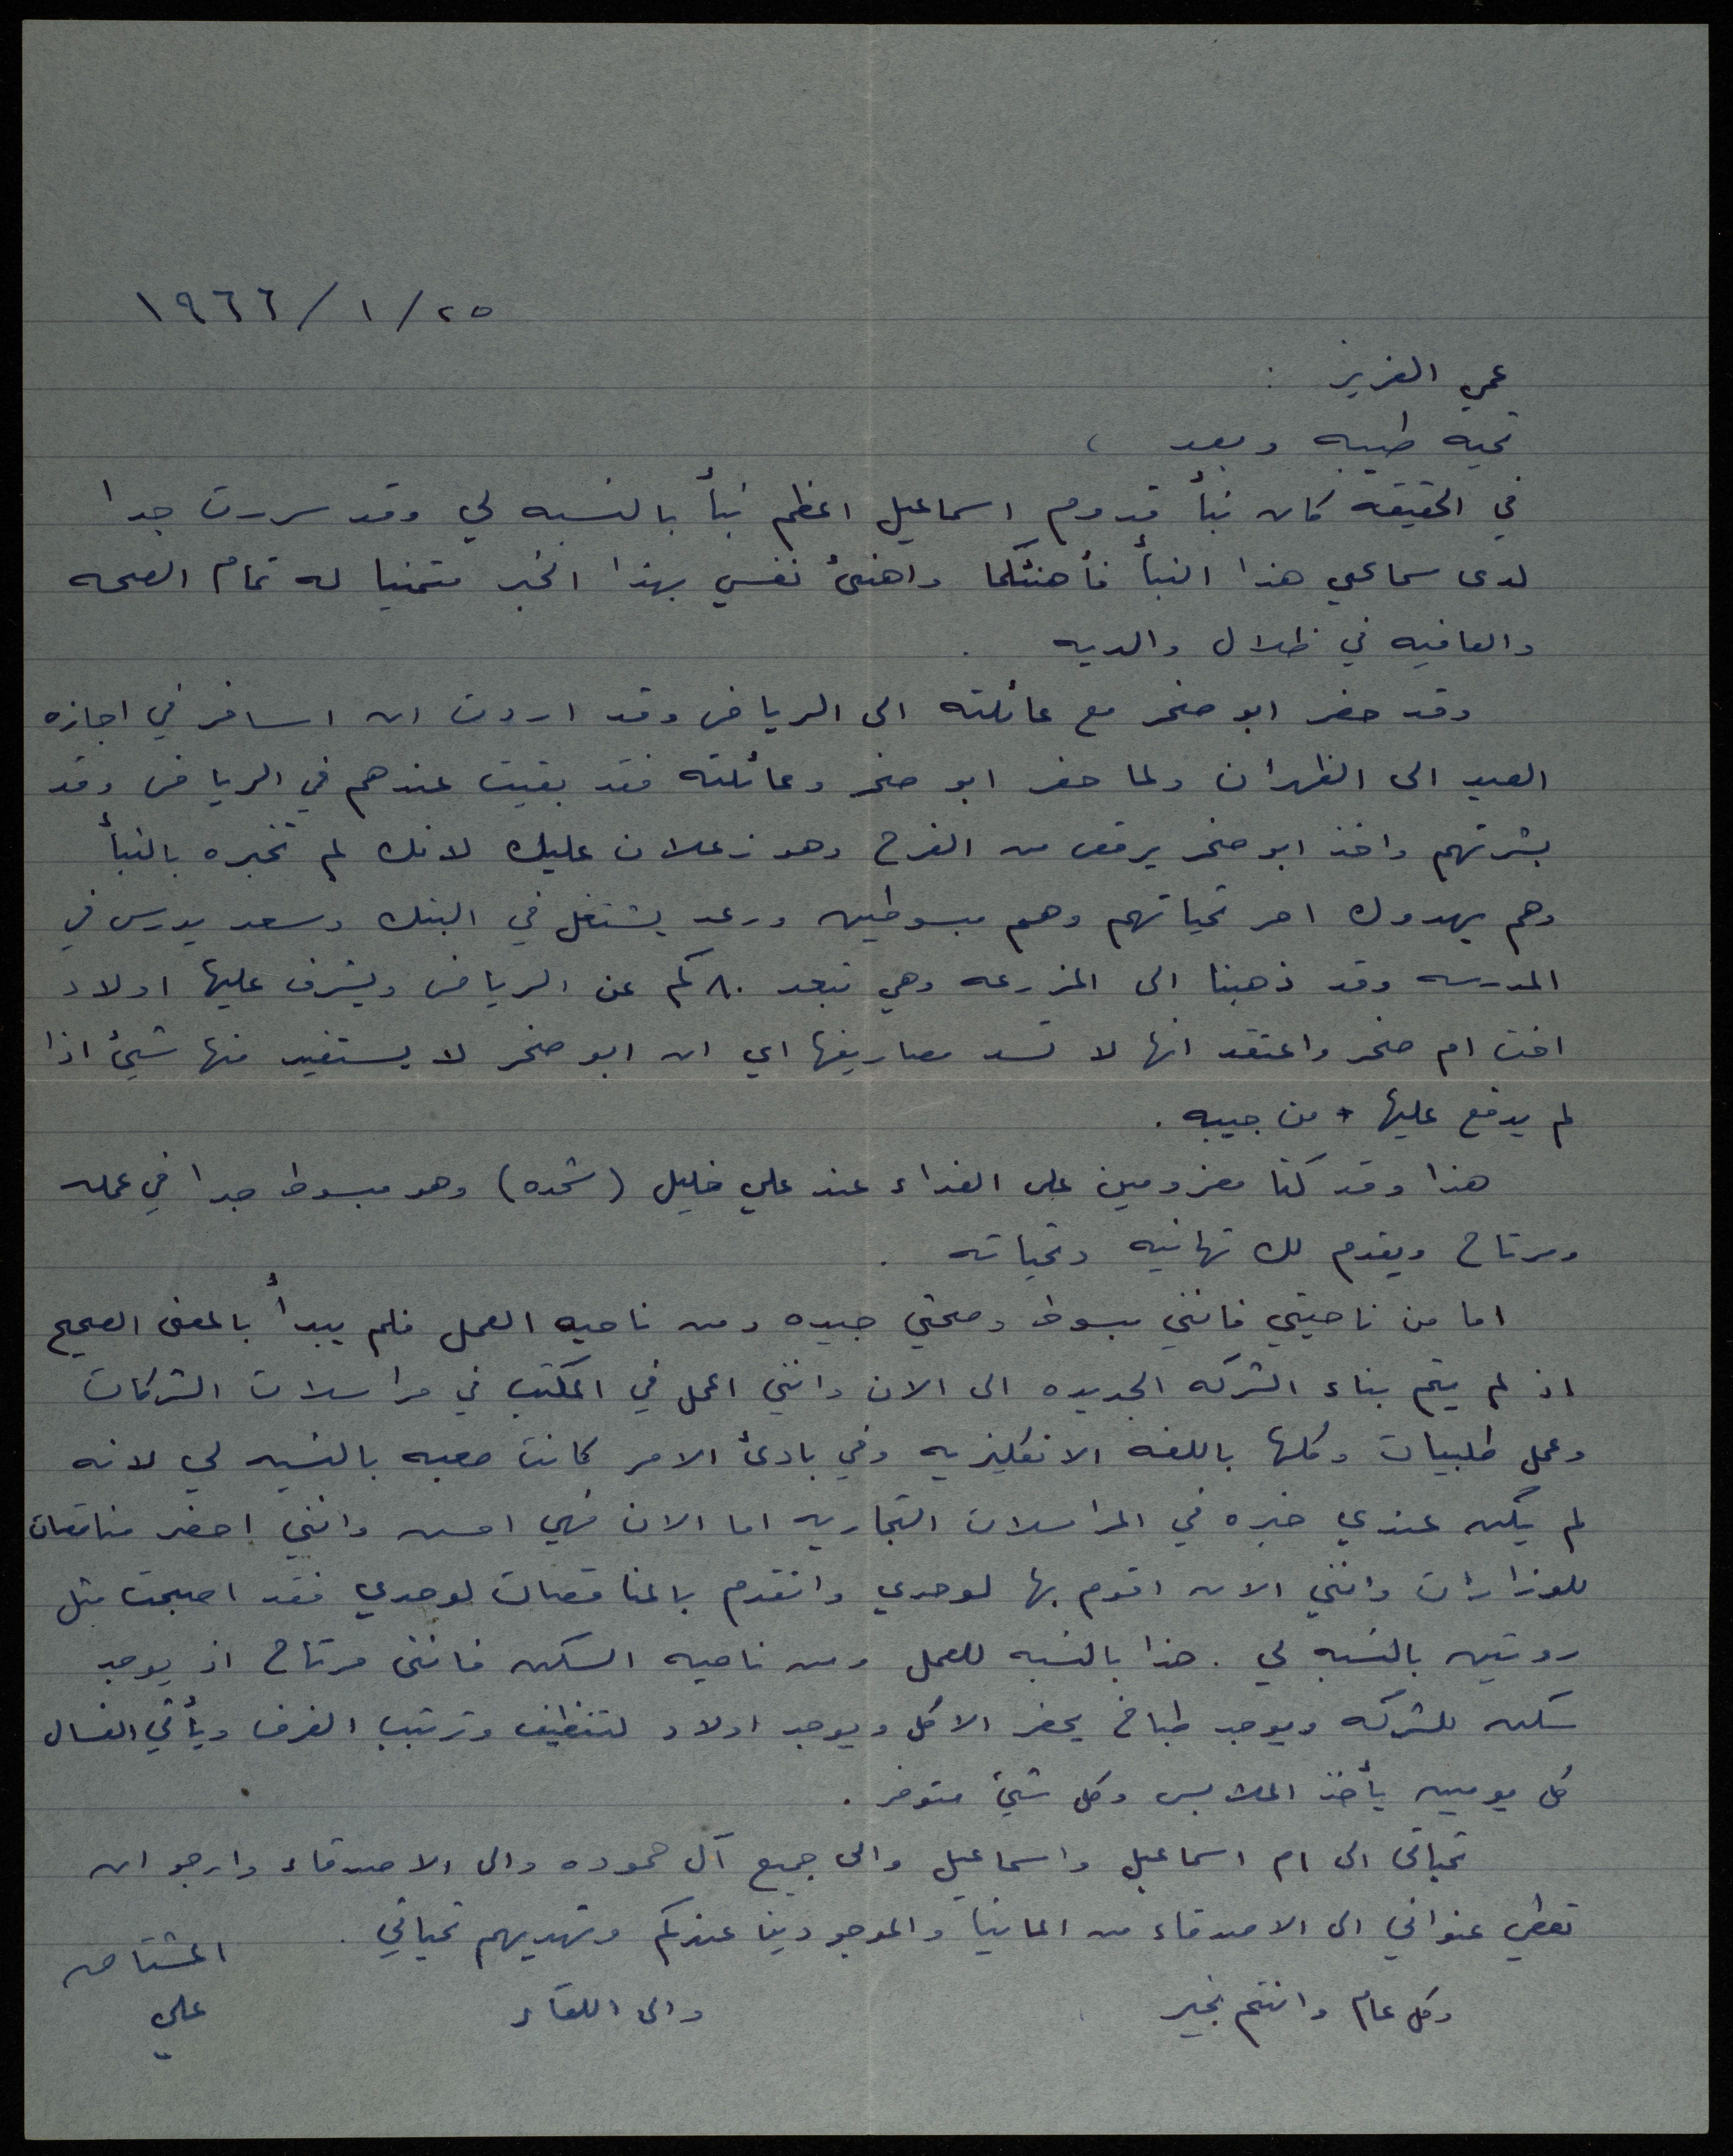 ٢٥/ ١/ ١٩٦٦
عمي العزيز :
تحيه طيبه وبعد ،
في الحقيقه كان نبأ قدوم اسماعيل اعظم نبأ بالنسبه لي وقد سررت جدا
لدى سماعي هذا النبأ فأهنئكما واهنئ نفسي بهذا الخبر متمنيا له تمام الصحه
والعافيه في ظلال والديه .
وقد حضر ابو صخر مع عائلته الى الرياض وقد اردت ان اسافر في اجازه
العيد الى الظهران ولما حضر ابو صخر وعائلته فقد بقيت عندهم في الرياض وقد
بشرتهم واخذ ابو صخر يرقص من الفرح وهو زعلان عليك لانك لم تخبره بالنبأ
وهم يهدوك احر تحياتهم وهم مبسوطين ورعد يشتغل في البنك وسعد يدرس في
المدرسه وقد ذهبنا الى المزرعه وهي تبعد ٨٠ كم عن الرياض ويشرف عليها اولاد
اخت ام صخر واعتقد انها لا تسد مصاريفها اي ان ابو صخر لا يستفيد منها شيئ اذا
لم يدفع عليها من جيبه .
هذا وقد كنا معزومين على الغداء عند علي خليل (شحده) وهو مبسوط جدا في عمله
ومرتاح ويقدم لك تهانيه وتحياته .
اما من ناحيتي فانني مبسوط وصحتي جيده ومن ناحيه العمل فلم يبدأ بالمعنى الصحيح
اذ لم يتم بناء الشركه الجديده الى الان وانني اعمل في المكتب في مراسلات الشركات
وعمل طلبيات وكلها باللغه الانكليزيه وفي بادئ الامر كانت صعبه بالنسبه لي لانه
لم يكن عندي خبره في المراسلات التجاريه اما الان فهي احسن وانني احضر مناقصات
للوزارات وانني الان اقوم بها لوحدي واتقدم بالمناقصات لوحدي فقد اصبحت مثل
روتين بالنسبه لي . هذا بالنسبه للعمل ومن ناحيه السكن فانني مرتاح اذ يوجد
سكن للشركه ويوجد طباخ يحضر الاكل ويوجد اولاد لتنظيف وترتيب الغرف ويأتي الغسال
كل يومين يأخذ الملابس وكل شيئ متوفر .
تحياتي الى ام اسماعيل واسماعيل والى جميع آل حموده والى الاصدقاء وارجو ان
تعطي عنواني الى الاصدقاء من المانيا والموجودين عندكم وتهديهم تحياتي .
وكل عام وانتم بخير والى اللقاء المشتاق
علي